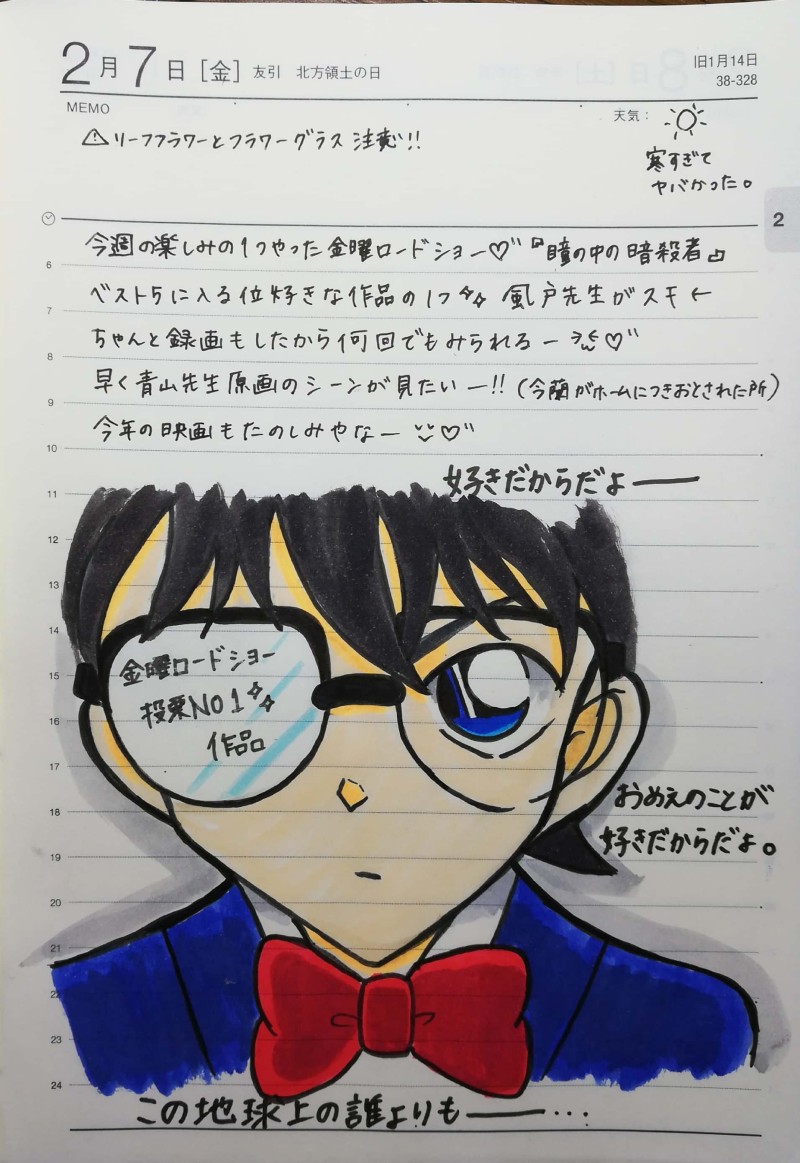 2月7日[金] 友引 北方領土の日
旧1月14日
38-328
MEMO
天気:
⚠リーフフラワーとフラワーグラス 注意!!
寒すぎて
ヤバかった。
2
今週の楽しみの1つやった金曜ロードショー♡"『瞳の中の暗殺者』
6
ベスト5に入る位好きな作品の1つ✨ 風戸先生がスキ←
7
ちゃんと録画もしたから何回でもみられるー♡"
8
早く青山先生原画のシーンが見たいー!!(今蘭がホームにつきおとされた所)
9
今年の映画もたのしみやなー♡"
10
好きだからだよ――
11
12
13
14
金曜ロードショー
15
投票NO1✨
16
作品
17
おめえのことが
18
好きだからだよ。
19
20
21
22
23
24
この地球上の誰よりも――…